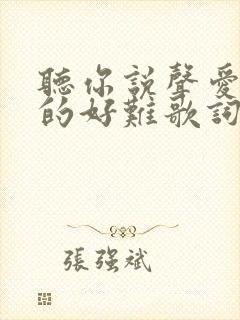 聽你說聲愛
的好難歌詞
張强斌